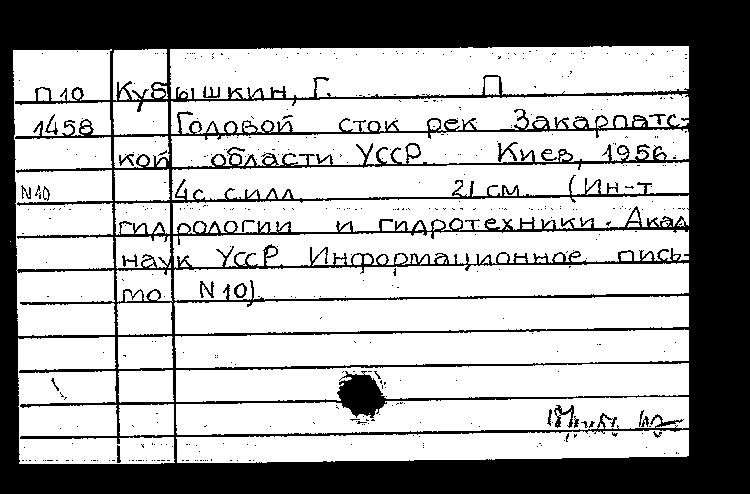 П10 Кубышкин, Г. П
1458 Годовой сток рек Закарпатс-
кой области УССР. Киев, 1956.
N10 4с. с илл. 21 см. (Ин-т
гидрологии и гидротехники. Акад
наук УССР. Информационное пись-
мо N 10).